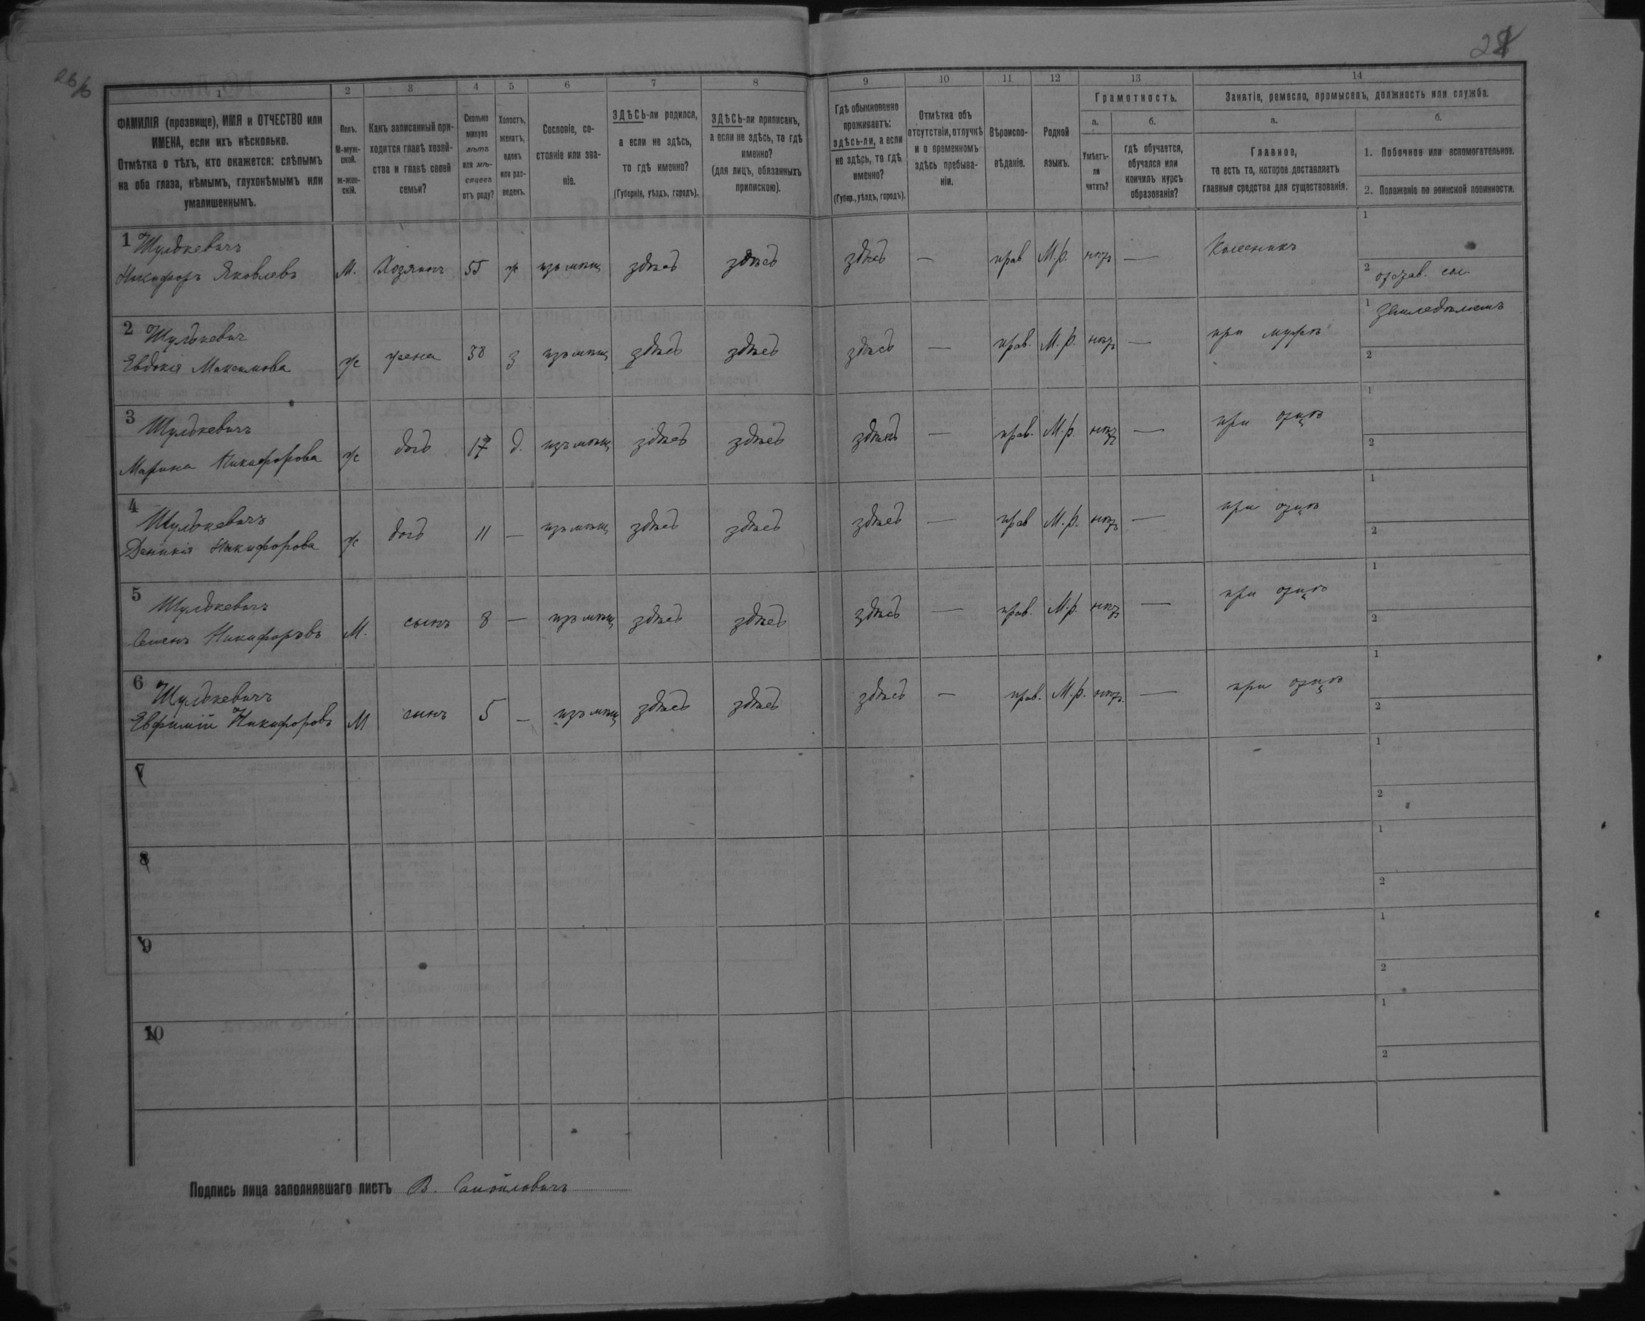 28
1 2 3 4 5 6 7 8 9 10 11 12 13 14
ФАМИЛІЯ (прозвище), ИМЯ и ОТЧЕСТВО или
ИМЕНА, если ихъ нѣсколько.
Отмѣтка о тѣхъ, кто окажется: слѣпымъ
на оба глаза, нѣмымъ, глухонѣмымъ или
умалишеннымъ.
Полъ.
М-муж-
ской.
Ж-жен-
скій.
Какъ записанный при-
ходится главѣ хозяй-
ства и главѣ своей
семьи?
Сколько
минуло
лѣтъ
или мѣ-
сяцевъ
отъ роду?
Холостъ,
женатъ,
вдовъ
или раз-
веденъ.
Сословіе, со-
стояніе или зва-
ніе.
ЗДѢСЬ-ли родился,
а если не здѣсь,
то гдѣ именно?
(Губернія, уѣздъ, городъ).
ЗДѢСЬ-ли приписанъ,
а если не здѣсь, то гдѣ
именно?
(для лицъ, обязанныхъ
припискою).
Гдѣ обыкновенно
проживаетъ:
здѣсь-ли, а если
не здѣсь, то гдѣ
именно?
(Губер., уѣздъ, городъ).
Отмѣтка объ
отсутствіи, отлучкѣ
и о временномъ
здѣсь пребыва-
ніи.
Вѣроиспо-
вѣданіе.
Родной
языкъ.
Грамотность.
а.
Умѣетъ-
ли
читать?
б.
гдѣ обучается,
обучался или
кончилъ курсъ
образованія?
Занятіе, ремесло, промыселъ, должность или служба.
а.
Главное,
то есть то, которое доставляетъ
главныя средства для существованія.
б.
1. Побочное или вспомогательное.
2. Положеніе по воинской повинности.
1 Шулькевичъ
Никифоръ Яковлевъ М. Хозяинъ 55 ж изъ мѣщ здѣсь здѣсь здѣсь — прав М.р. нѣтъ — Колесникъ
1
2 отстав.
2 Шулькевич
Евдокія Максимова ж жена 38 з изъ мѣщ здѣсь здѣсь здѣсь — прав. М.р. нѣтъ — при мужѣ
1 Земледѣліемъ
2
3 Шулькевичъ
Марина Никифорова ж дочь 17 д. изъ мѣщ здѣсь здѣсь здѣсь — прав. М.р. нѣтъ — при отцѣ
1
2
4 Шулькевичъ
Никифорова ж дочь 11 — изъ мѣщ здѣсь здѣсь здѣсь — прав М.р. нѣтъ — при отцѣ
1
2
5 Шулькевичъ
Семенъ Никифоровъ М. сынъ 8 — изъ мѣщ здѣсь здѣсь здѣсь — прав. М.р. нѣтъ — при отцѣ
1
2
6 Шулькевичъ
Евфимій Никифоровъ М сынъ 5 — изъ мѣщ здѣсь здѣсь здѣсь — прав. М.р. нѣтъ — при отцѣ
1
2
7
1
2
8
1
2
9
1
2
10
1
2
Подпись лица заполнявшаго листъ В.